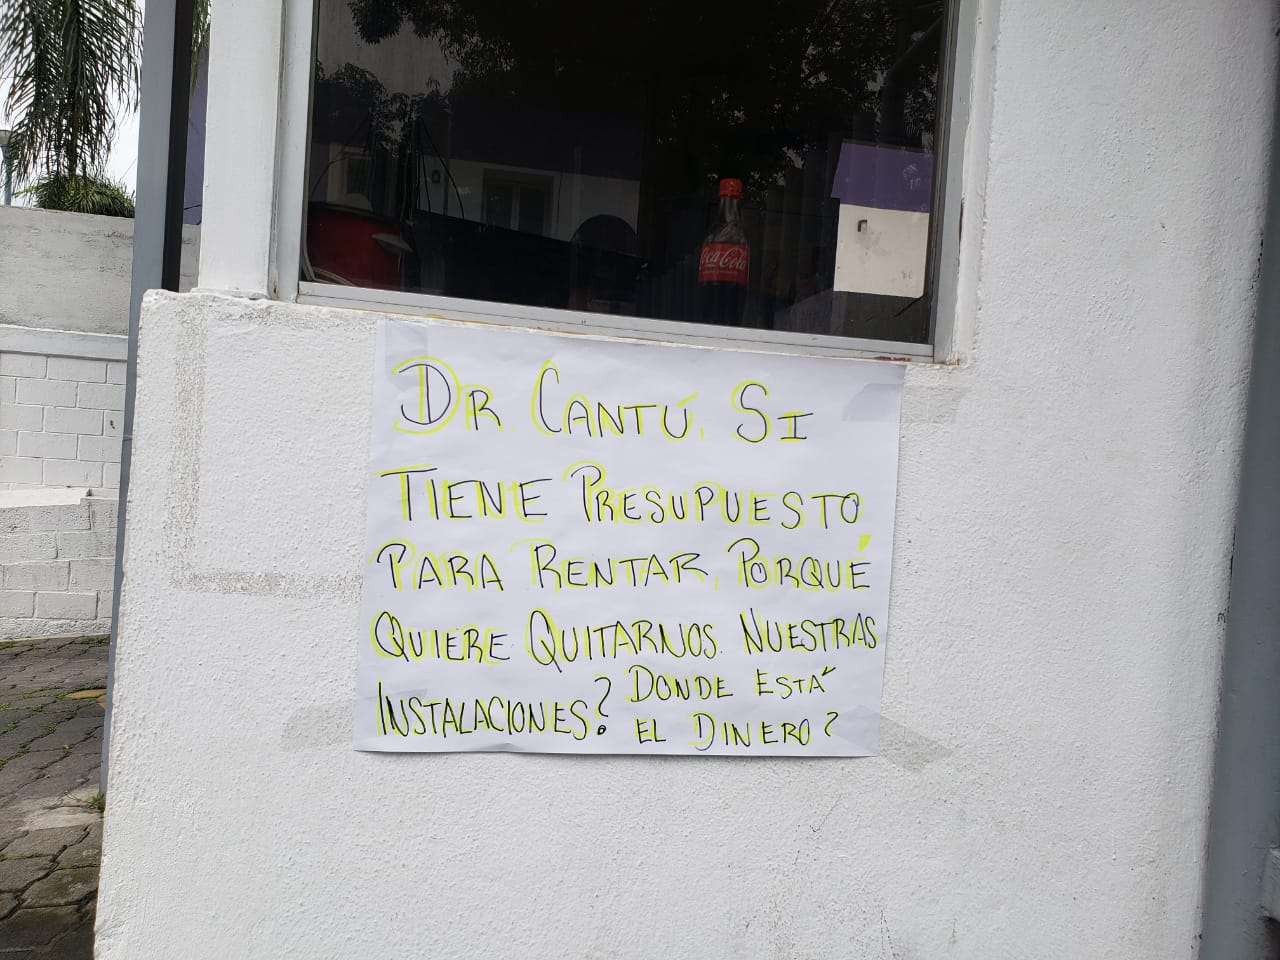 Coca-Cola
DR. CANTÚ, SI
TIENE PRESUPUESTO
PARA RENTAR, PORQUÉ
QUIERE QUITARNOS NUESTRAS
INSTALACIONES? DONDE ESTÁ
EL DINERO?